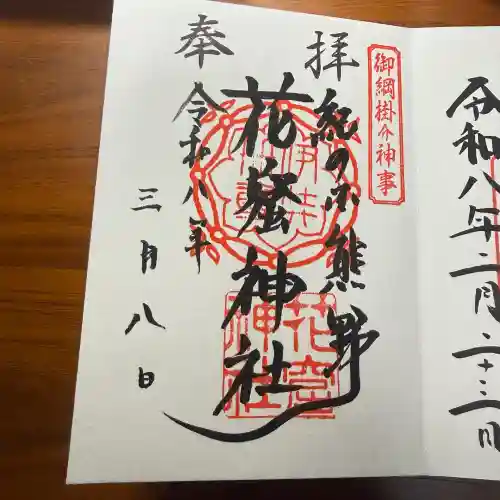 令和八年二月二十三日
御綱掛け神事
奉拝
紀の国熊野
花窟神社
花窟神社
令和八年
三月八日